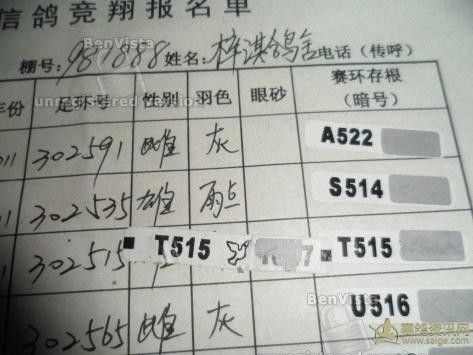 信鸽竞翔报名单
棚号: 981888 姓名: 梓淇鸽舍 电话（传呼）
年份 足环号 性别 羽色 眼砂 赛环存根（暗号）
011 302591 雌 灰 A522
01 302535 雄 雨点 S514
302515 T515 T515
302565 雌 灰 U516
BenVista
unregistered
BenVista
BenVista
赛鸽资讯网
www.saige.com